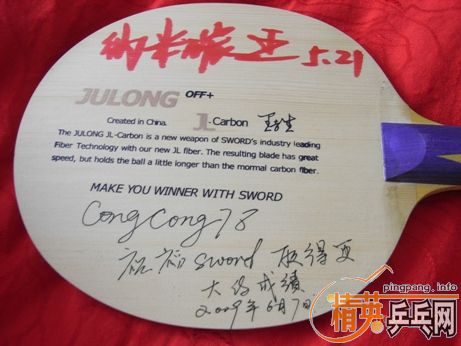 纳米碳王 5.21
JULONG OFF+
Created in China. JL-Carbon
The JULONG JL-Carbon is a new weapon of SWORD's industry leading
Fiber Technology with our new JL fiber. The resulting blade has great
speed, but holds the ball a little longer than the mormal carbon fiber.
MAKE YOU WINNER WITH SWORD
CongCong78
祝福sword 取得更
大的成绩
2009年6月7日
pingpang.info
精英乒乓网